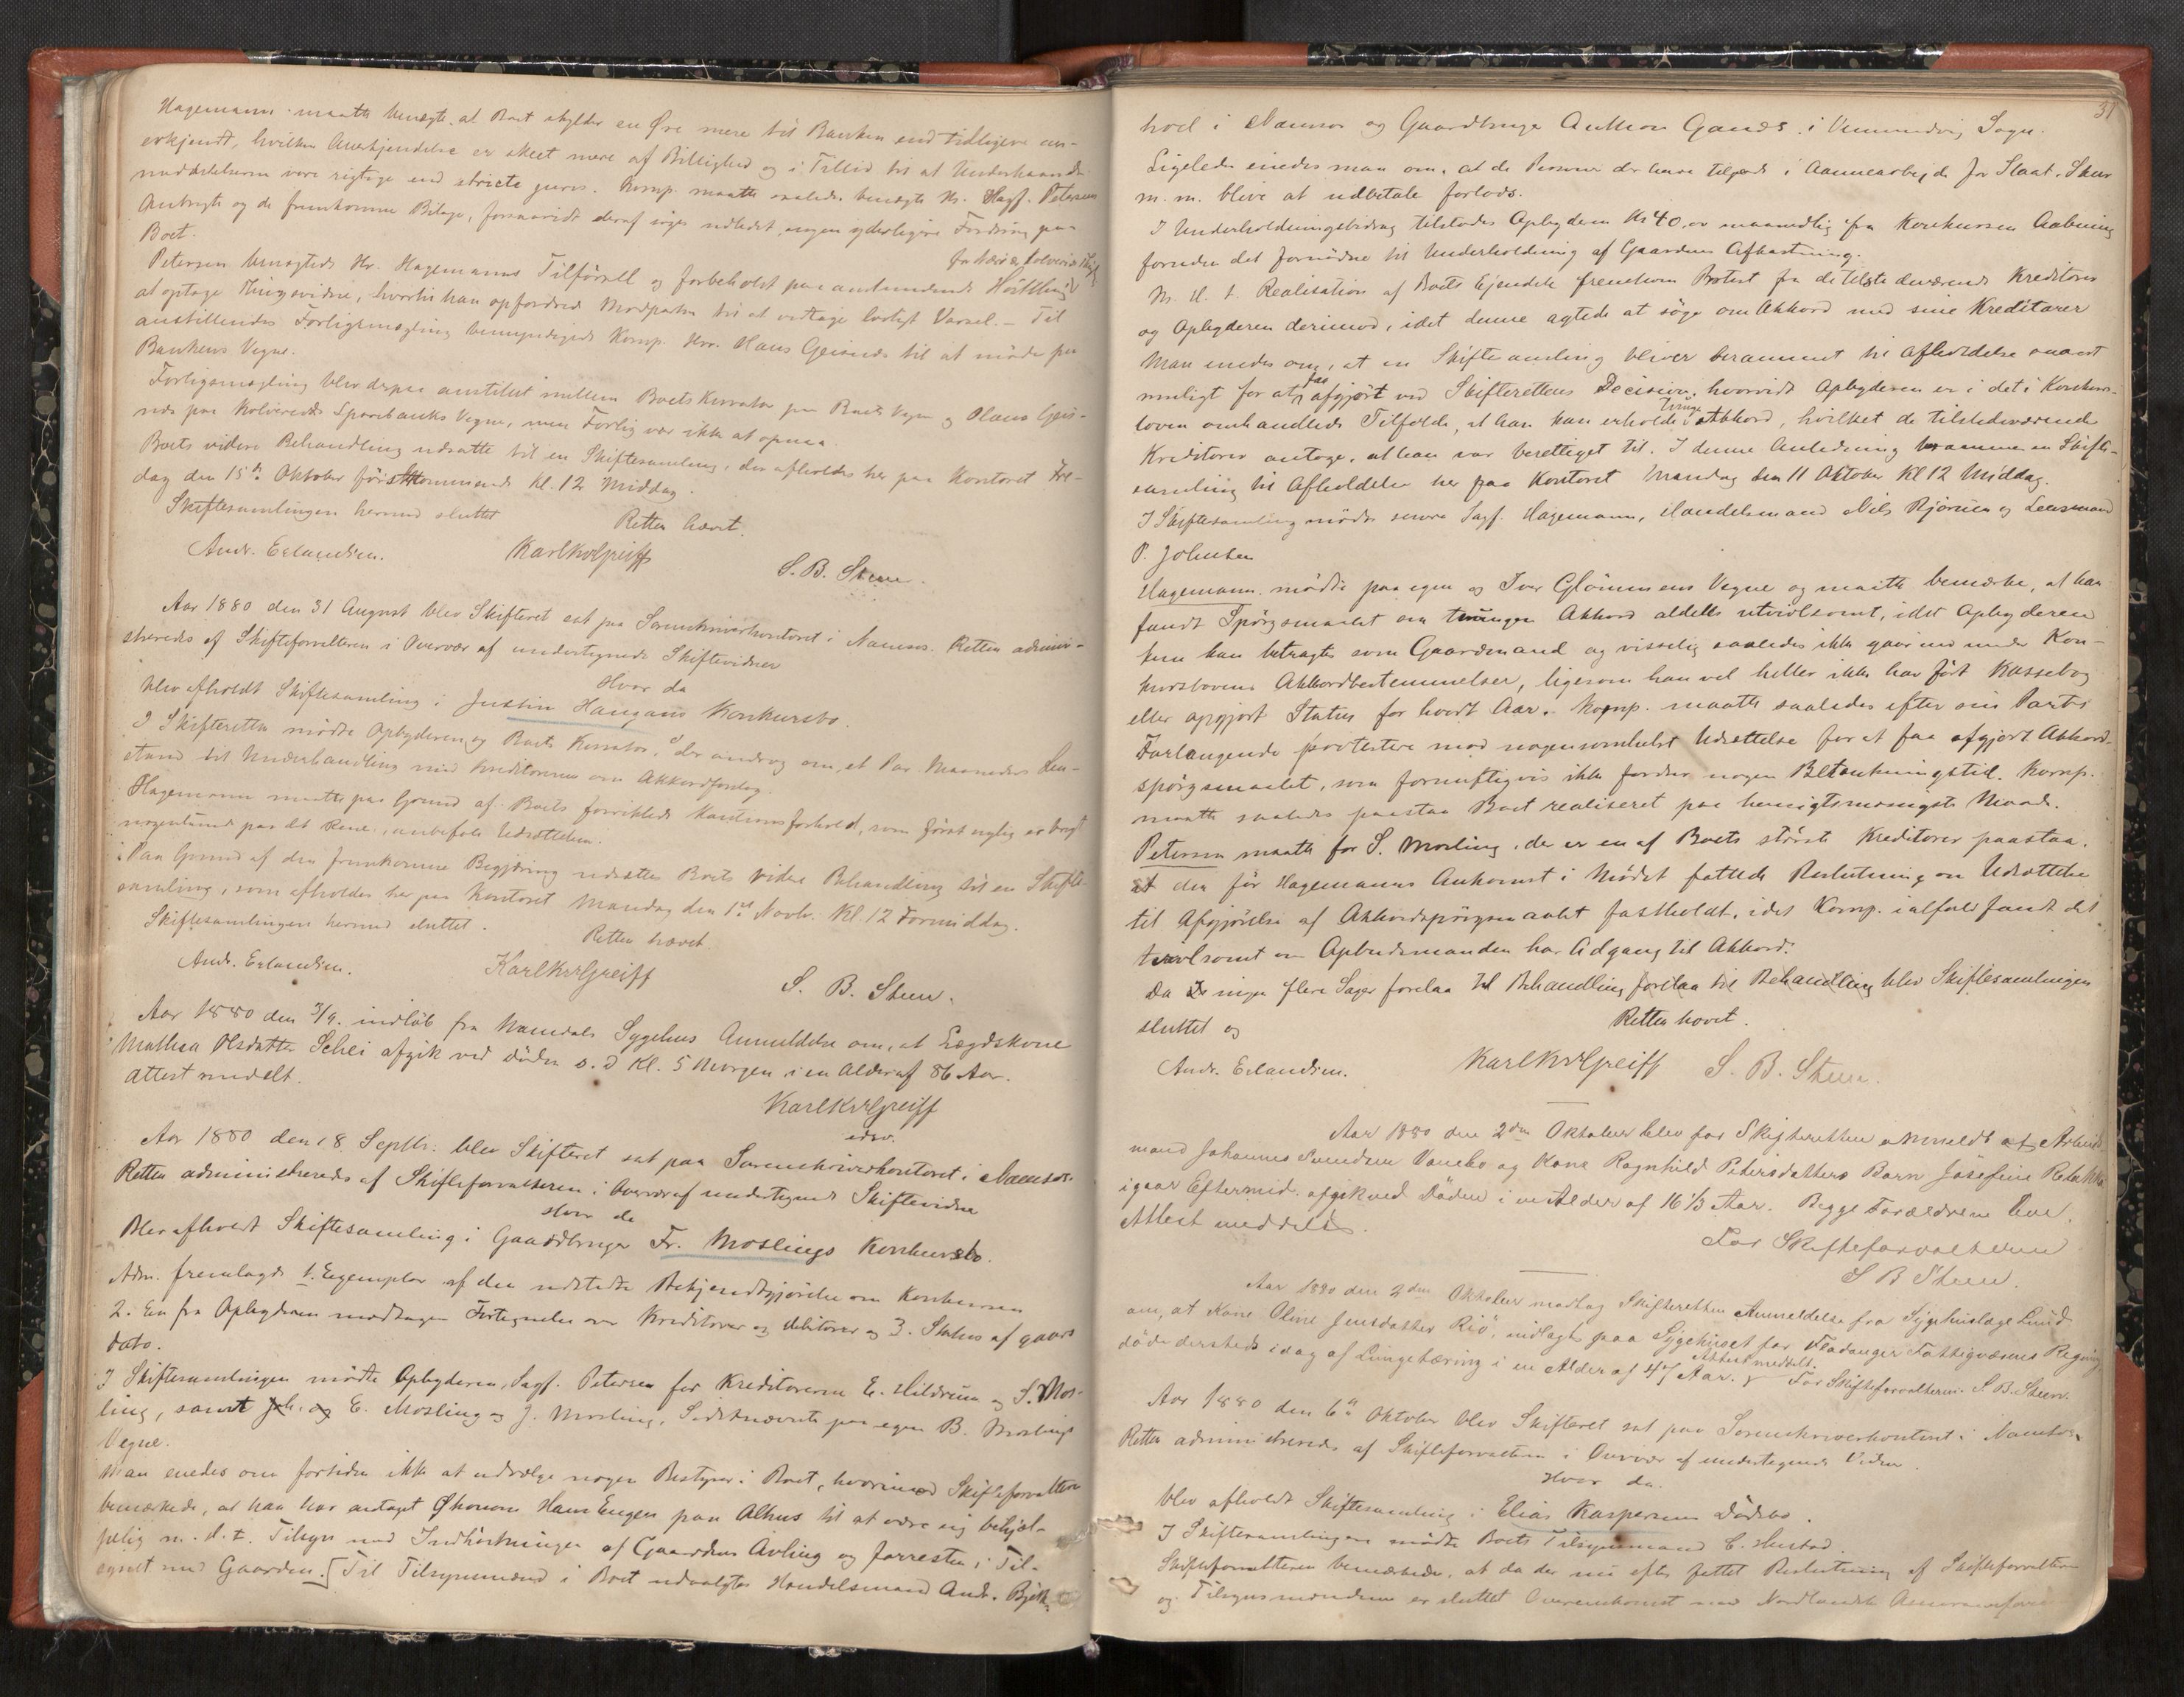 Hagemann maatte benægte, at Boet skylder en Øre mere til Banken end tidligere an-
erkjendt, hvilken Anerkjendelse er skeet mere af Billighed og i Tillid til at Underhaands
meddelelserne vare rigtige end stricte juris. Komp. maatte saaledes benægte Hr. Sagf. Petersens
Anbragte og de fremkomne Bilage, forsaavidt deraf søges udledet nogen yderligere Fordring paa
Boet.
Petersen benægtede Hr. Hagemanns Tilførsel og forbeholdt paa anstundende Høstthing
for Nærø & Kolvereid Thgl.
at optage Thingsvidne, hvortil han opfordred Modparten til at vedtage lovligt Varsel. – Til
anstillendes Forligsmægling bemyndigede Komp. Hr. Olaus Geisnæs til at møde paa
Bankens Vegne.
Forligsmægling blev derpaa anstillet mellem Boets Kurator paa Boets Vegne og Olaus Geis-
næs paa Kolvereids Sparebanks Vegne, men Forlig var ikke at opnaa.
Boets videre Behandling udsatte til en Skiftesamling, der afholdes her paa Kontoret Fre-
dag den 15de Oktober førstkommende Kl. 12 Middag.
Skiftesamlingen hermed sluttet
Retten hævet.
Andr. Erlandsen.
KarlKrGreiff
S. B. Steen.
Aar 1880 den 31 August blev Skifteret sat paa Sorenskriverkontoret i Namsos. Retten admini-
streredes af Skifteforvalteren i Overvær af undertegnede Skiftevidner
Hvor da
blev afholdt Skiftesamling i Justin Haugans Konkursbo.
I Skifteretten mødte Opbyderen og Boets Kurator, der androg om, et Par Maaneders Hen-
stand til Underhandling med Kreditorerne om Akkordforslag.
Hagemann maatte paa Grund af Boets forviklede Kautionsforhold, som først nylig er bragt
nogenlunde paa det Rene, anbefale Udsættelsen.
Paa Grund af den fremkomne Begjæring udsættes Boets videre Behandling til en Skifte-
samling, som afholdes her paa Kontoret Mandag den 1ste Novbr. Kl. 12 Formiddag.
Skiftesamlingen hermed sluttet.
Retten hævet
Andr. Erlandsen.
KarlKrGreiff
S. B. Steen.
Aar 1880 den 3/9. indløb fra Namdals Sygehus Anmeldelse om, at Lægdskone
Mathea Olsdatter Schei afgik ved Døden s. D Kl. 5 Morgen i en Alder af 86 Aar.
Attest meddelt.
KarlKrGreiff
edsv.
Aar 1880 den 18 Septbr. blev Skifteret sat paa Sorenskriverkontoret i Namsos.
Retten administreredes af Skifteforvalteren i Overvær af undertegnede Skiftevidner
Hvor da
Blev afholdt Skiftesamling i Gaardbruger Fr. Moslings Konkursbo.
Adm. fremlagde 1. Exemplar af den udstedte Bekjendtgjørelse om Konkursen
2. En fra Opbyderen modtagen Fortegnelse over Kreditorer og debitorer og 3. Status af gaars
Dato.
I Skiftesamlingen mødte Opbyderen, Sagf. Petersen for Kreditorerne E. Hildrum og S. Mos-
ling, samt Joh. og E. Mosling og J. Mosling, Sidstnævnte paa egen B. Moslings
Vegne.
Man enedes om fortiden ikke at udvælge nogen Bestyrer i Boet, hvorimod Skifteforvalteren
bemærkede, at han har antaget Økonom Hans Engen paa Alhus til at være sig behjæl-
pelig m. H. t. Tilsyn med Indhøstningen af Gaardens Avling og forresten i Til-
synet med Gaarden. Til Tilsynsmænd i Boet udvalgtes Handelsmand Andr. Bjørk-
37
hoel i Namsos og Gaardbruger Anthon Ganæs i Vemundvig Sogn.
Ligeledes enedes man om, at de Personer der have tilgode i Aannearbejde for Slaat, Skur
m. m. blive at udbetale forlods.
I Underholdningsbidrag tilstodes Opbyderen Kr 40,00 maanedlig fra Konkursens Aabning
foruden det fornødne til Underholdning af Gaardens Afkastning.
M. H. t. Realisation af Boets Ejendele fremkom Protest fra de tilstedeværende Kreditorer
og Opbyderen derimod, idet denne agtede at søge om Akkord med sine Kreditorer
Man enedes om, at en Skiftesamling bliver berammet til Afholdelse snarest
muligt for at faa afgjort ved Skifterettens Decision, hvorvidt Opbyderen er i det i Konkurs-
loven omhandlede Tilfælde, at han kan erholde tvungen Akkord, hvilket de tilstedeværende
Kreditorer antage, at han var berettiget til. I denne Anledning berammes en Skifte-
samling til Afholdelse her paa Kontoret Mandag den 11 Oktober Kl 12 Middag.
I Skiftesamling mødte senere Sagf. Hagemann, Handelsmand Nils Bjørum og Lensmand
P. Johnsen
Hagemann mødte paa egen og Iver Glømmens Vegne og maatte bemærke, at han
fandt Spørgsmaalet om tvungen Akkord aldeles utvivlsomt, idet Opbyderen
kun kan betragtes som Gaardmand og visselig saaledes ikke gaar ind under Kon-
kurslovens Akkordbestemmelser, ligesom han vel heller ikke har ført Kassebog
eller opgjort Status for hvert Aar. Komp. maatte saaledes efter sin Parts
Forlangende protestere mod nogensomhelst Udsættelse for at faa afgjort Akkord-
spørgsmaalet, som fornuftigvis ikke fordrer nogen Betænkningstid. Komp.
maatte saaledes paastaa Boet realiseret paa hensigtsmæssigste Maade.
Petersen maatte for S. Mosling, der er en af Boets største Kreditorer paastaa,
at den før Hagemanns Ankomst i Mødet fattede Beslutning om Udsættelse
til Afgjørelse af Akkordspørgsmaalet fastholdt, idet Komp. ialfald fandt det
tvivlsomt om Opbudsmanden har Adgang til Akkord.
Da ingen flere Sager forelaa til Behandling forelaa til Behandling blev Skiftesamlingen
sluttet og
Retten hævet.
Andr. Erlandsen.
KarlKrGreiff
S. B. Steen.
Aar 1880 den 2den Oktober blev for Skifteretten anmeldt at Arbeids-
mand Johannes Svendsen Vanebo og Kone Ragnhild Petersdatters Barn Josefine Rebekka
igaar Eftermid. afgik ved Døden i en Alder af 16 1/3 Aar. Begge Forældrene leve.
Attest meddelt.
For Skifteforvalteren
S B Steen.
Aar 1880 den 2den Oktober modtog Skifteretten Anmeldelse fra Sygehuslæge Lund
om, at Kone Oline Jensdatter Riø, indlagt paa Sygehuset for Fladanger Fattigvæsens Regning
døde dersteds idag af Lungetæring i en Alder af Aar. Attest meddelt. For Skifteforvalteren. S. B. Steen.
Aar 1880 den 6te Oktober blev Skifteret sat paa Sorenskriverkontoret i Namsos.
Retten administreredes af Skifteforvalteren i Overvær af undertegnede Vidner.
Hvor da.
blev afholdt Skiftesamling i Elias Kaspersens Dødsbo.
I Skiftesamlingen mødte Boets Tilsynsmand C. Hustad.
Skifteforvalteren bemærkede, at da der nu efter fattet Beslutning af Skifteforvalteren
og Tilsynsmændene er sluttet Overenskomst med Nordlandske